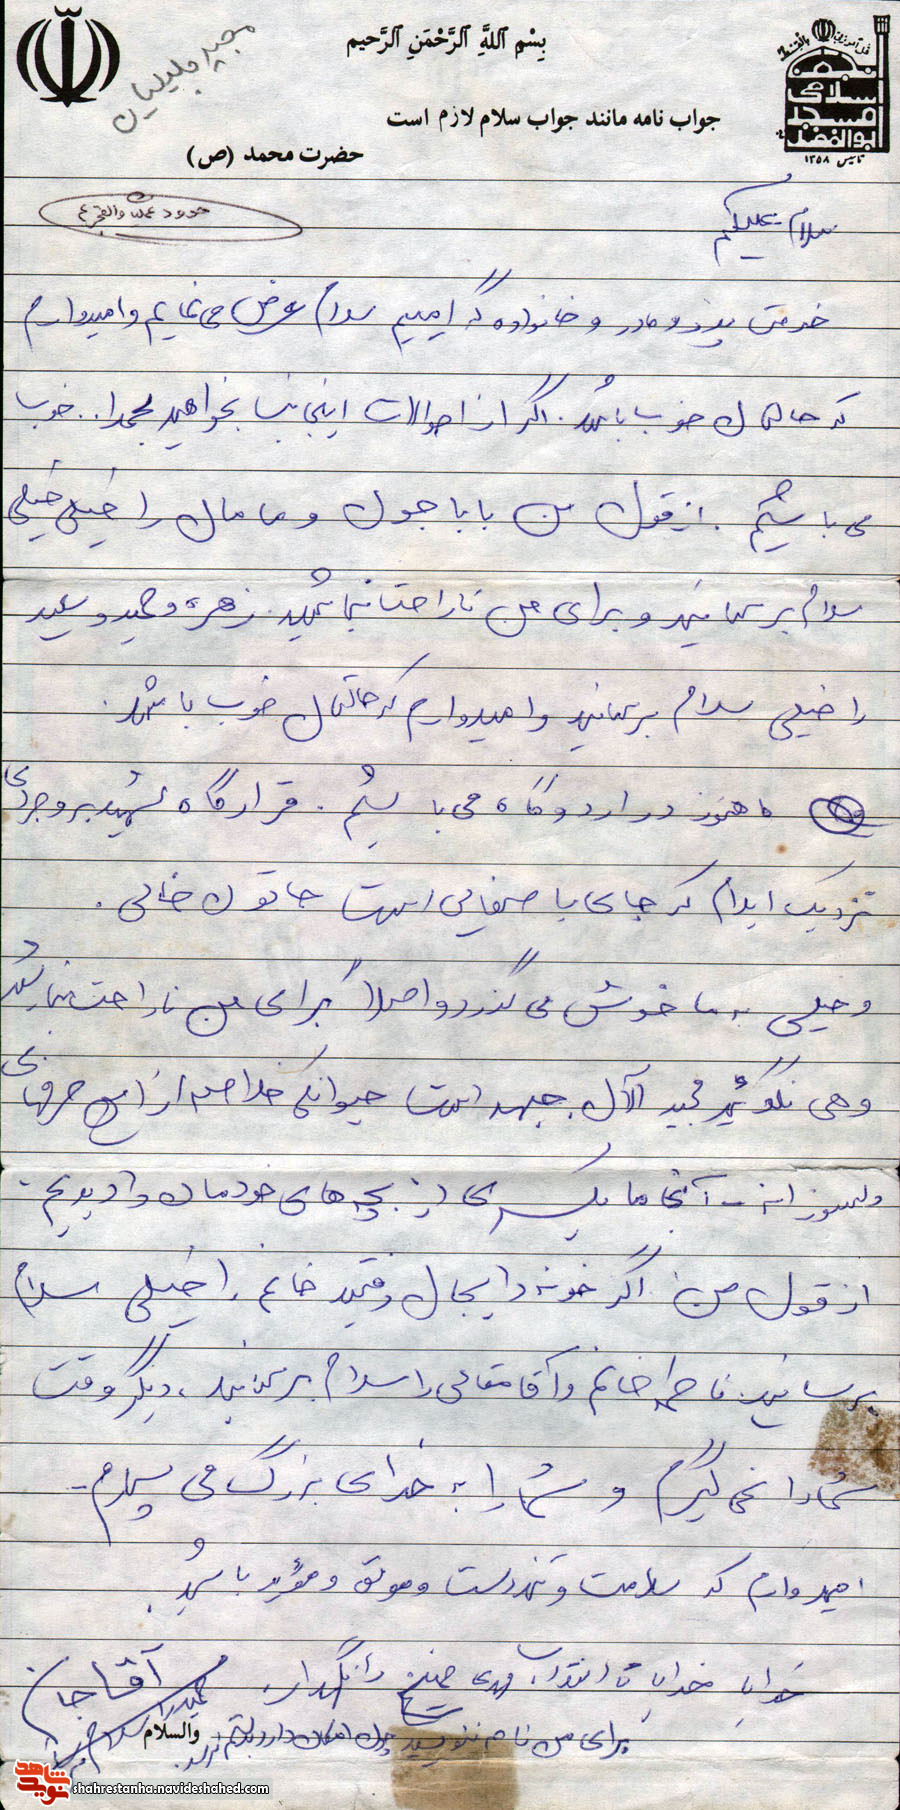 بِسْمِ ٱللَّهِ ٱلرَّحْمَنِ ٱلرَّحیم
جواب نامه مانند جواب سلام لازم است
حضرت محمد (ص)
انجمن
اسلامی
مسجد
ابوالفضل
تاسیس ۱۳۵۸
مجید جلیلیان
حدود عملیات والفجر ۴
سلام علیکم
خدمت پدر و مادر و خانواده گرامیم سلام عرض می نمایم و امیدوارم
که حالتان خوب باشد. اگر از احوالات اینجانب بخواهید بحمدا.. خوب
می باشیم. از قول من باباجون و مامان را خیلی خیلی
سلام برسانید و برای من ناراحت نباشید. زهره و حمید و سعید
را خیلی سلام برسانید و امیدوارم که حالتان خوب باشد.
ما هنوز در اردوگاه می باشیم. قرارگاه شهید بروجردی
نزدیک ایلام که جای با صفایی است جاتون خالی.
و خیلی به ما خوش می گذرد و اصلا برای من ناراحت نباشید
و هی نگوئید مجید الآن جبهه است حیوانکی خلاصه از این حرفهای
دلسوزانه - آنجا ما یکسری از بچه های خودمان را دیدیم -
از قول من اگر خونه دایجان رفتید خانم را خیلی سلام
برسانید. فاطمه خانم و آقا را سلام برسانید، دیگر وقت
شما را نمی گیرم و شما را به خدای بزرگ می سپارم -
امیدوارم که سلامت و تندرست و موفق و مؤید باشید.
خدایا خدایا تا انقلاب مهدی خمینی را نگهدار،
آقاجان
حمید را سلام
برای من نامه ننویسید چون امکان دارد بدستم نرسد.
والسلام
نوید شاهد
shahrestanha.navideshahed.com